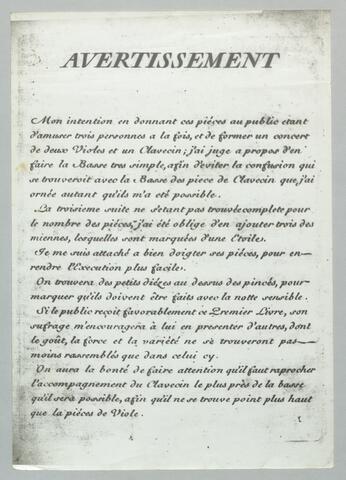 AVERTISSEMENT
Mon intention en donnant ces piéces au public etant
d'amuser trois personnes a la fois, et de former un concert
de deux Violes et un Clavecin; j'ai juge a propos d'en
faire la Basse tres simple, afin d'eviter la confusion qui
se trouveroit avec la Basse des piece de Clavecin que j'ai
ornée autant qu'ils m'a eté possible.
La troisieme suite ne s'etant pas trouvée complete pour
le nombre des piéces, j'ai été oblige d'en ajouter trois des
miennes, lesquelles sont marquées d'une Etoile.
Je me suis attaché a bien doigter ses piéces, pour en-
rendre l'Execution plus facile.
On trouvera des petits diézes au dessus des pincés, pour
marquer qu'ils doivent être faits avec la notte sensible.
Si le public reçoit favorablement ce Premier Livre, son
sufrage m'encouragera à lui en presenter d'autres, dont
le goût, la force et la variété ne sé trouveront pas
moins rassemblés que dans celui cy.
On aura la bonté de faire attention qu'il faut raprocher
l'accompagnement du Clavecin le plus près de la basse
qu'il sera possible, afin qu'il ne se trouve point plus haut
que la piéces de Viole.